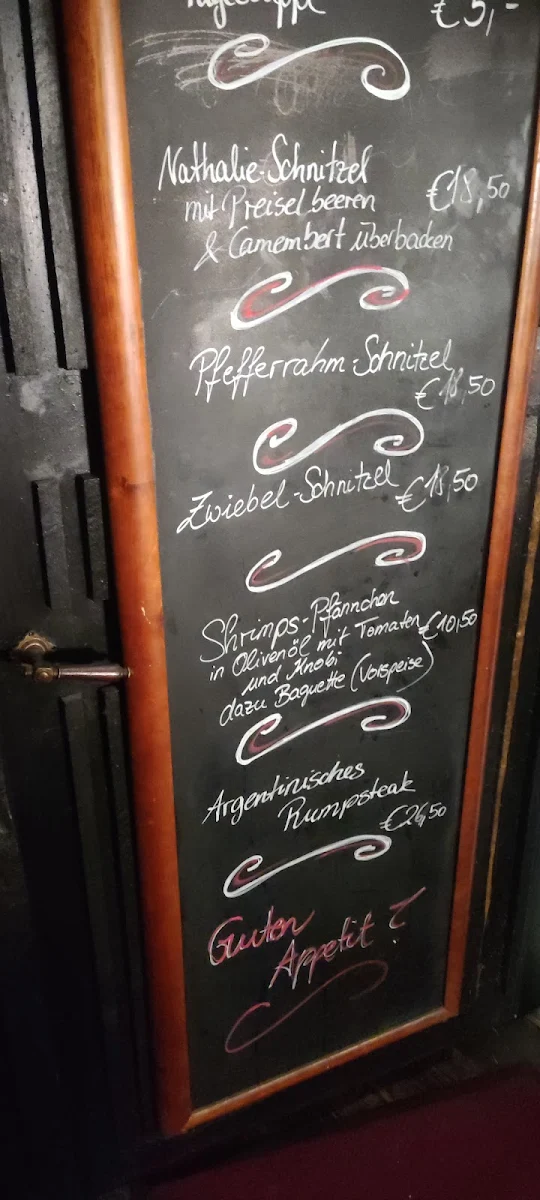 €5,-
Nathalie-Schnitzel
mit Preiselbeeren €18,50
& Camembert überbacken
Pfefferrahm-Schnitzel
€18,50
Zwiebel-Schnitzel €18,50
Shrimps-Pfännchen
in Olivenöl mit Tomaten €10,50
und Knobi
dazu Baguette (Vorspeise)
Argentinisches
Rumpsteak
€26,50
Guten
Appetit !